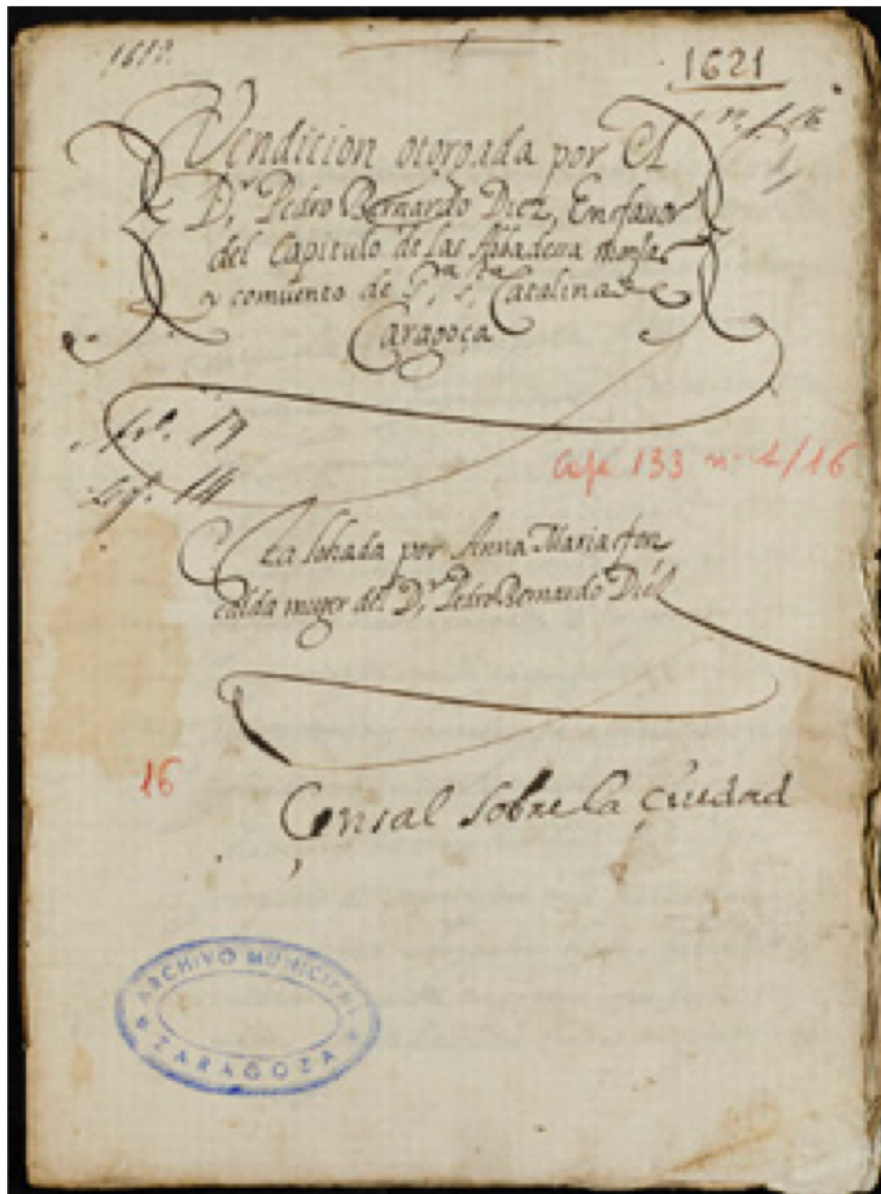 1621
Vendicion otorgada por El
D.r Pedro Bernardo Diez, En fauor
del Capitulo de las Abbadesa monjas
y comuento de S.ta Catalina de
Caragoça
Caje 133 nº 1/16
lohada por Anna Maria fon
calda muger del D.r Pedro Bernardo Diez
16
Censal sobre la Ciudad
ARCHIVO MUNICIPAL
ZARAGOZA